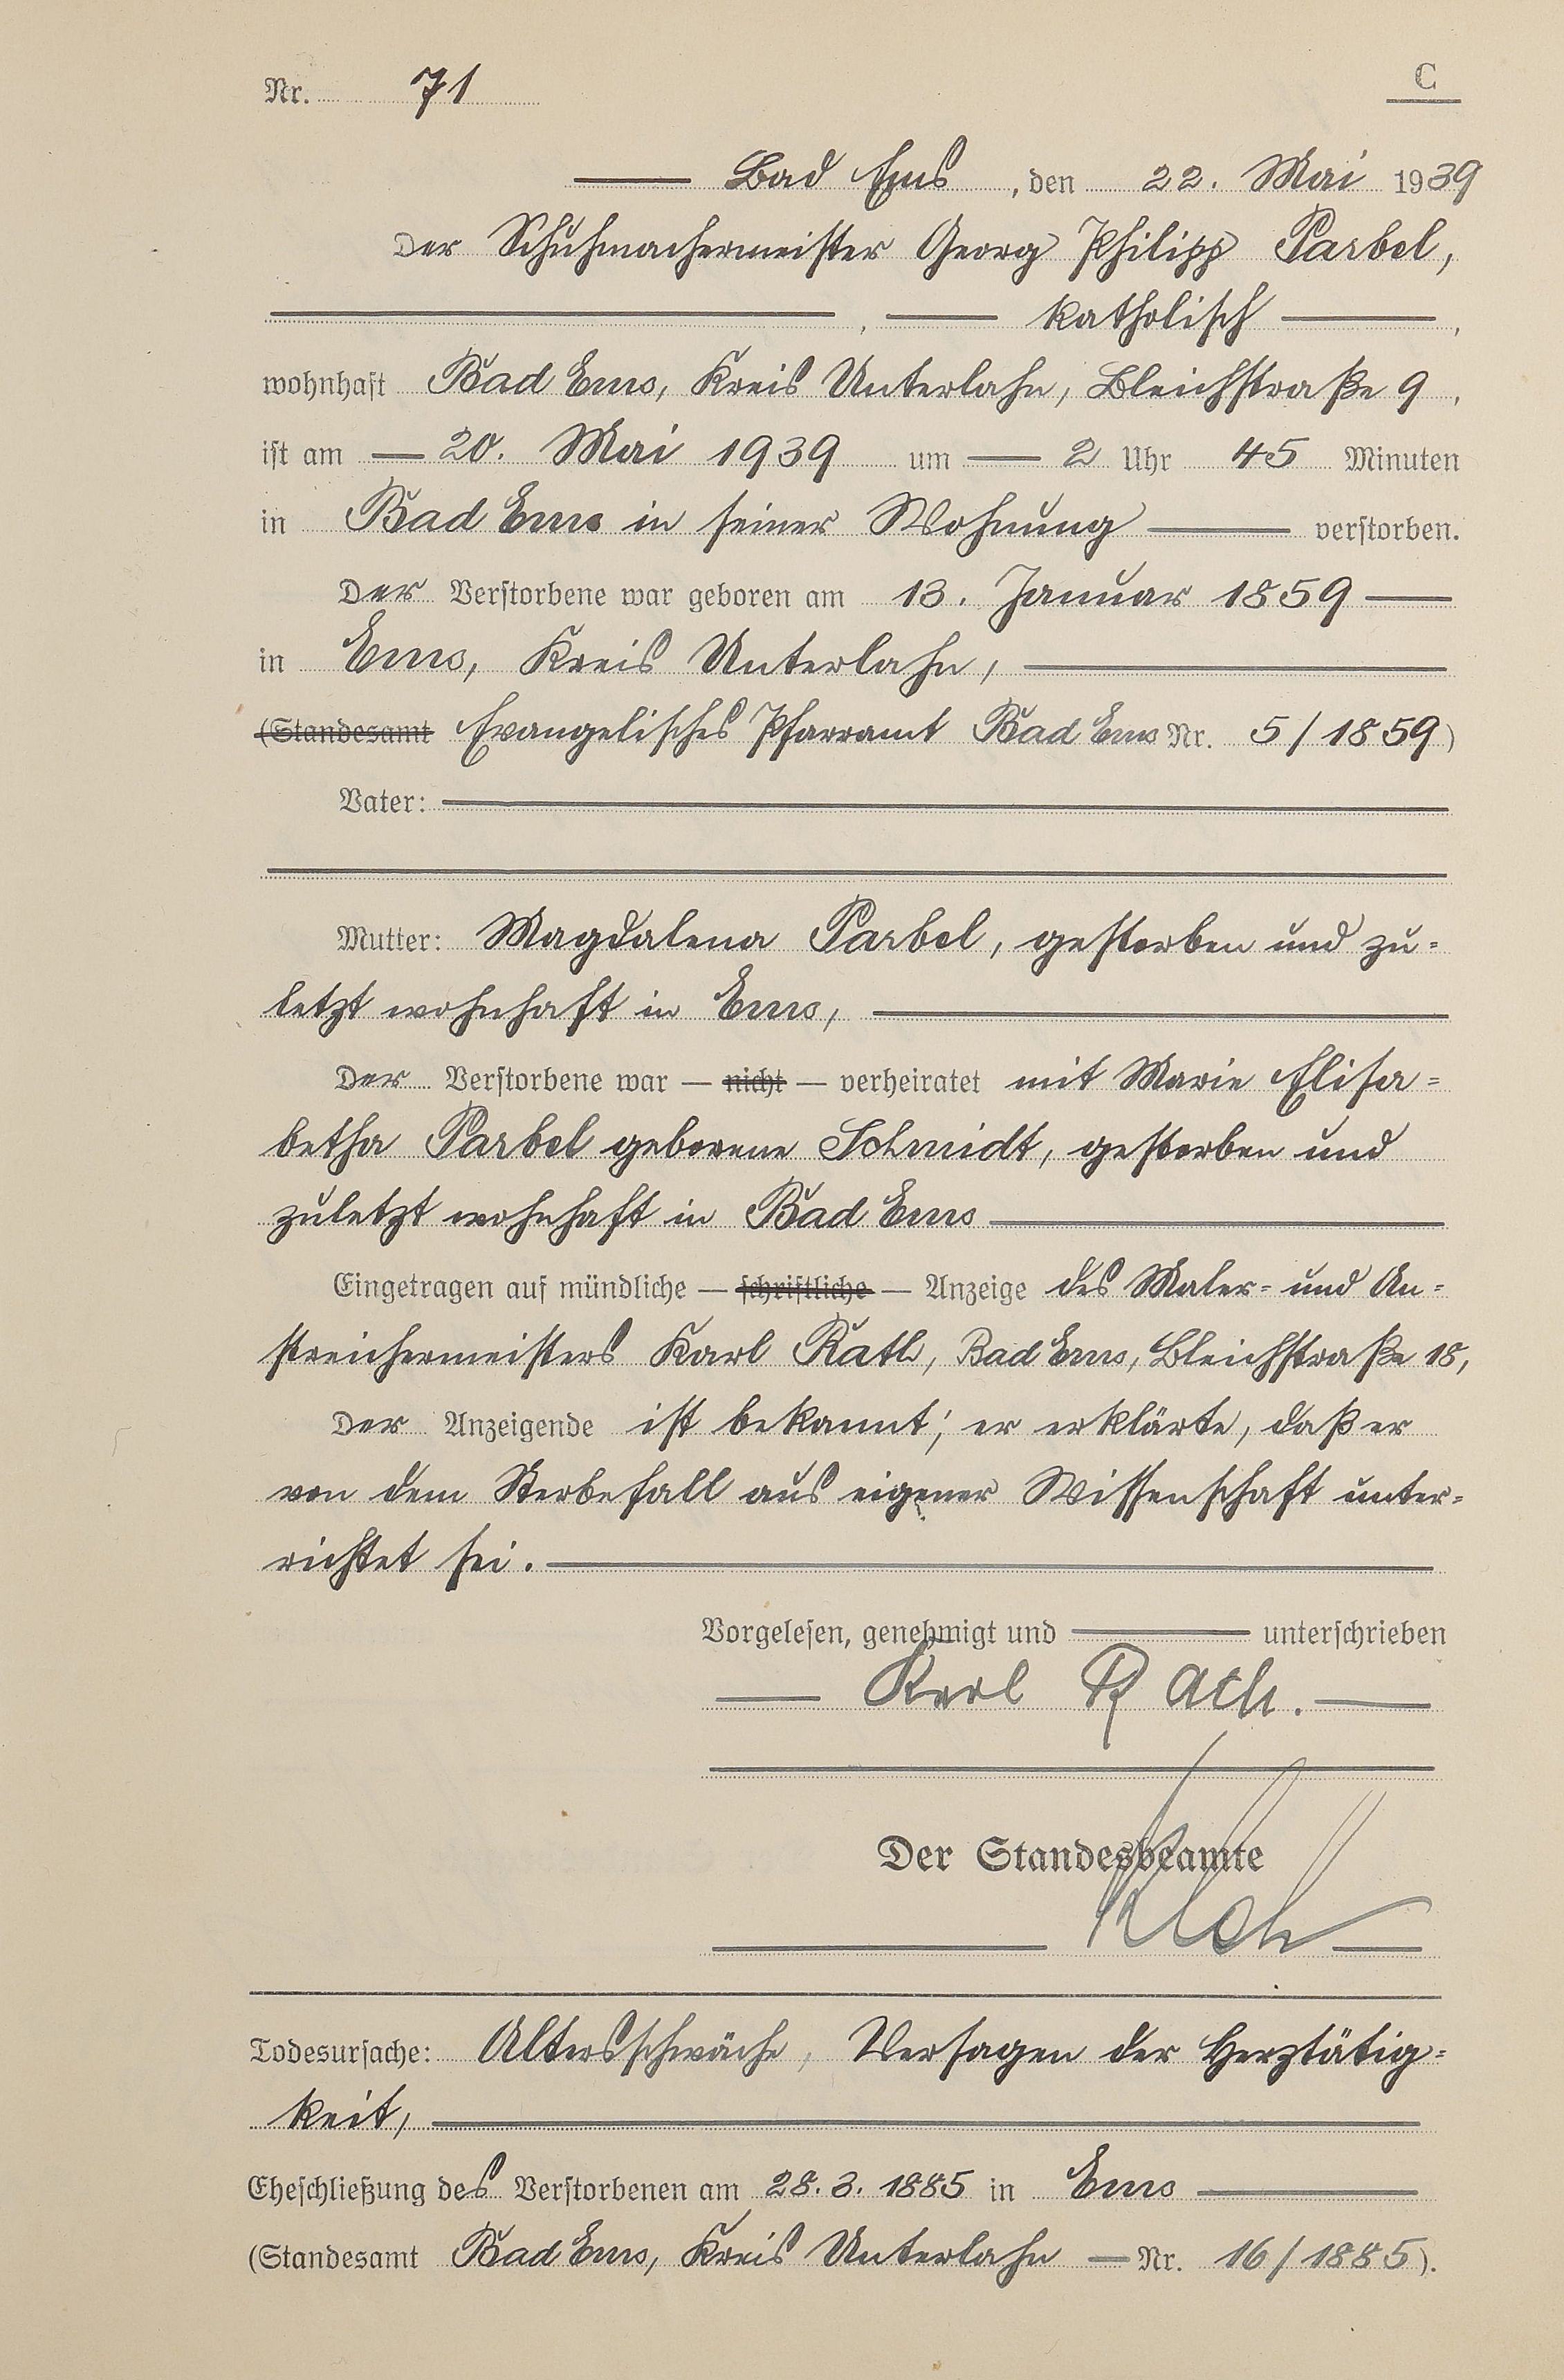 Nr. 71 C
Bad Ems, den 22. Mai 1939
Der Schuhmachermeister Georg Philipp Parbel,
, katholisch,
wohnhaft Bad Ems, Kreis Unterlahn, Bleichstraße 9,
ist am 20. Mai 1939 um 2 Uhr 45 Minuten
in Bad Ems in seiner Wohnung verstorben.
Der Verstorbene war geboren am 13. Januar 1859
in Ems, Kreis Unterlahn,
(Standesamt Evangelisches Pfarramt Bad Ems Nr. 5/1859)
Vater:
Mutter: Magdalena Parbel, gestorben und zu=
letzt wohnhaft in Ems,
Der Verstorbene war — nicht — verheiratet mit Marie Elisa=
betha Parbel geborene Schmidt, gestorben und
zuletzt wohnhaft in Bad Ems
Eingetragen auf mündliche — schriftliche — Anzeige des Maler= und An=
streichermeisters Karl Rath, Bad Ems, Bleichstraße 18,
Der Anzeigende ist bekannt; er erklärte, daß er
von dem Sterbefall aus eigener Wissenschaft unter=
richtet sei.
Vorgelesen, genehmigt und unterschrieben
Karl Rath.
Der Standesbeamte
Todesursache: Altersschwäche, Versagen der Herztätig=
keit,
Eheschließung des Verstorbenen am 28.3.1885 in Ems
(Standesamt Bad Ems, Kreis Unterlahn — Nr. 16/1885).